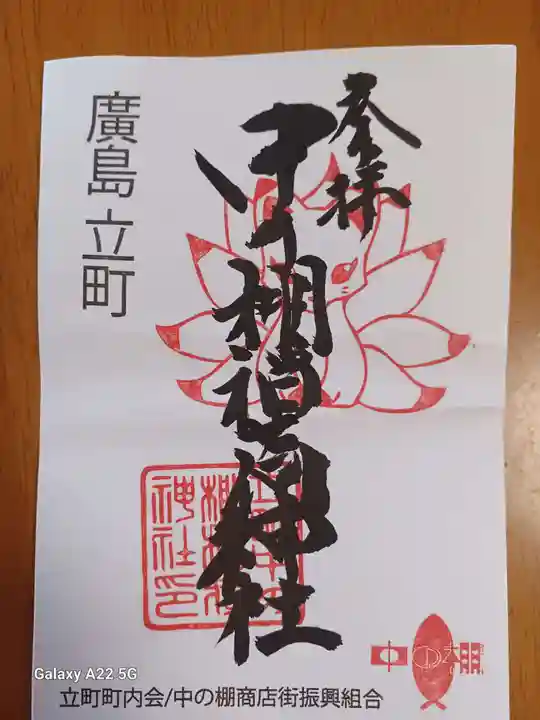 奉拝
中の棚稲荷神社
廣島 立町
神社印
中の棚
立町町内会/中の棚商店街振興組合
Galaxy A22 5G